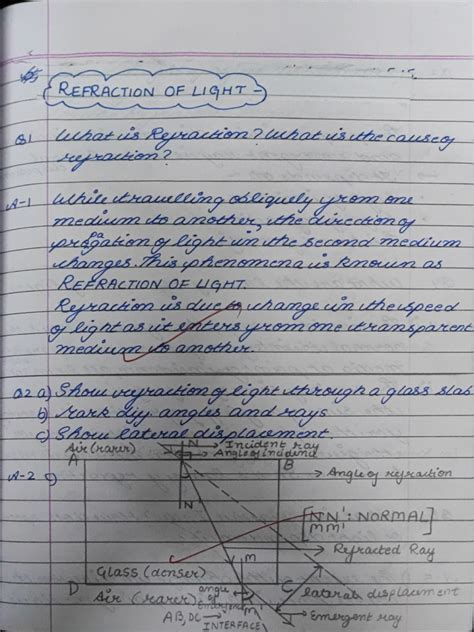 REFRACTION OF LIGHT -
Q1 What is Refraction? What is the cause of
refraction?
A-1 While travelling obliquely from one
medium to another, the direction of
propagation of light in the second medium
changes. This phenomena is known as
REFRACTION OF LIGHT.
Refraction is due to change in the speed
of light as it enters from one transparent
medium to another.
Q2 a) Show refraction of light through a glass slab
b) Mark diff angles and rays
c) Show lateral displacement.
Air (rarer) N → Incident ray
→ Angle of incidence
A-2 c) A B → Angle of refraction
N'
[NN' : NORMAL
MM']
M → Refracted Ray
Glass (denser)
D C lateral displacement
Air (rarer) angle of
Emergence M' → Emergent ray
AB, DC → INTERFACE